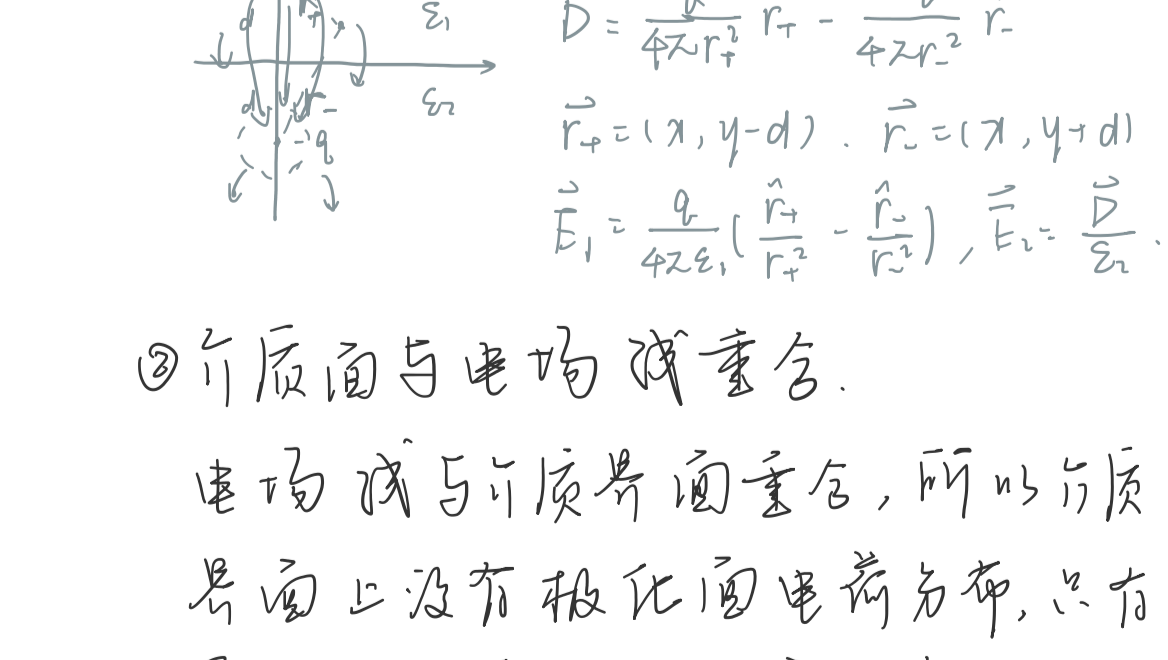 ε₁
D = q/4πr₊² r₊ - q/4πr₋² r₋
d
ε₂
d r₋
q
r⃗₊ = (x, y-d). r⃗₋ = (x, y+d)
E⃗₁ = q/4πε₁ (r̂₊/r₊² - r̂₋/r₋²), E⃗₂ = D⃗/ε₂.
② 介质面与电场线重合.
电场线与介质界面重合, 所以介质
界面上没有极化面电荷分布, 只有